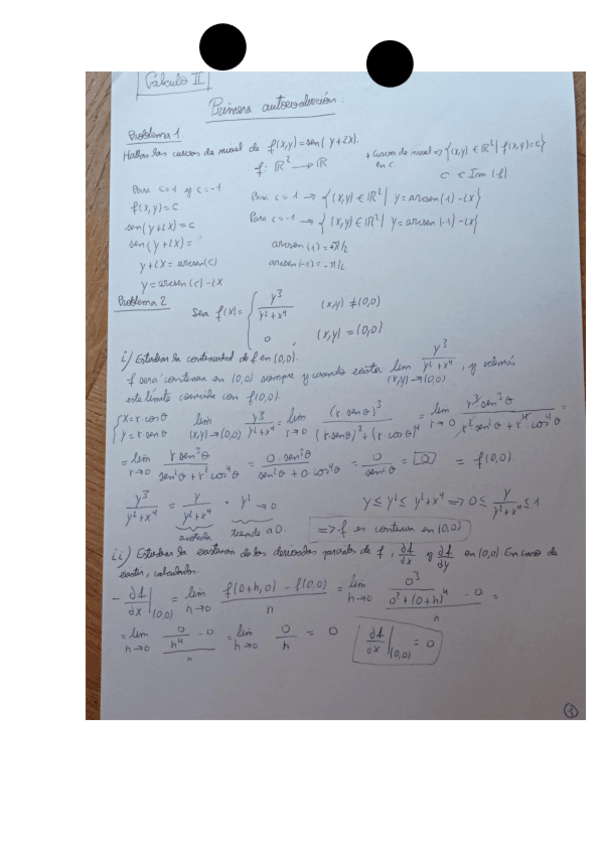 Cálculo II
Primera autoevaluación.
Problema 1.
Hallar las curvas de nivel de f(x,y)=sen(y+2x).
f: ℝ² → ℝ
* Curvas de nivel ⇒ {(x,y) ∈ ℝ² | f(x,y)=c}
en c.
c ∈ Im(f)
Para c=1 y c=-1
f(x,y)=c
sen(y+2x)=c
sen(y+2x)=
y+2x = arcsen(c)
y = arcsen(c) - 2x
Para c=1 → {(x,y) ∈ ℝ² | y = arcsen(1) - 2x}
Para c=-1 → {(x,y) ∈ ℝ² | y = arcsen(-1) - 2x}
arcsen(1) = π/2
arcsen(-1) = -π/2
Problema 2
Sea f(x)= { y³/(y²+x⁴) (x,y) ≠ (0,0)
0, (x,y) = (0,0)
i) Estudiar la continuidad de f en (0,0).
f será continua en (0,0) siempre y cuando exista lim (x,y)→(0,0) y³/(y²+x⁴), y además
este límite coincida con f(0,0).
{ x = r·cosθ
y = r·senθ
lim (x,y)→(0,0) y³/(y²+x⁴) = lim r→0 (r·senθ)³/((r·senθ)²+(r·cosθ)⁴) = lim r→0 r³sen³θ/(r²sen²θ + r⁴cos⁴θ) =
= lim r→0 r sen³θ/(sen²θ + r²cos⁴θ) = 0·sen³θ/(sen²θ + 0·cos⁴θ) = 0/sen²θ = 0 = f(0,0).
y³/(y²+x⁴) = y/(y²+x⁴) · y² → 0
acotada tiende a 0.
y ≤ y² ≤ y²+x⁴ ⇒ 0 ≤ y/(y²+x⁴) ≤ 1
⇒ f es continua en (0,0)
ii) Estudiar la existencia de las derivadas parciales de f, ∂f/∂x y ∂f/∂y en (0,0) En caso de
existir, calcularlas.
- ∂f/∂x|(0,0) = lim h→0 (f(0+h,0) - f(0,0))/h = lim h→0 (0³/(0²+(0+h)⁴) - 0)/h =
= lim h→0 (0/h⁴ - 0)/h = lim h→0 0/h = 0
∂f/∂x|(0,0) = 0
1